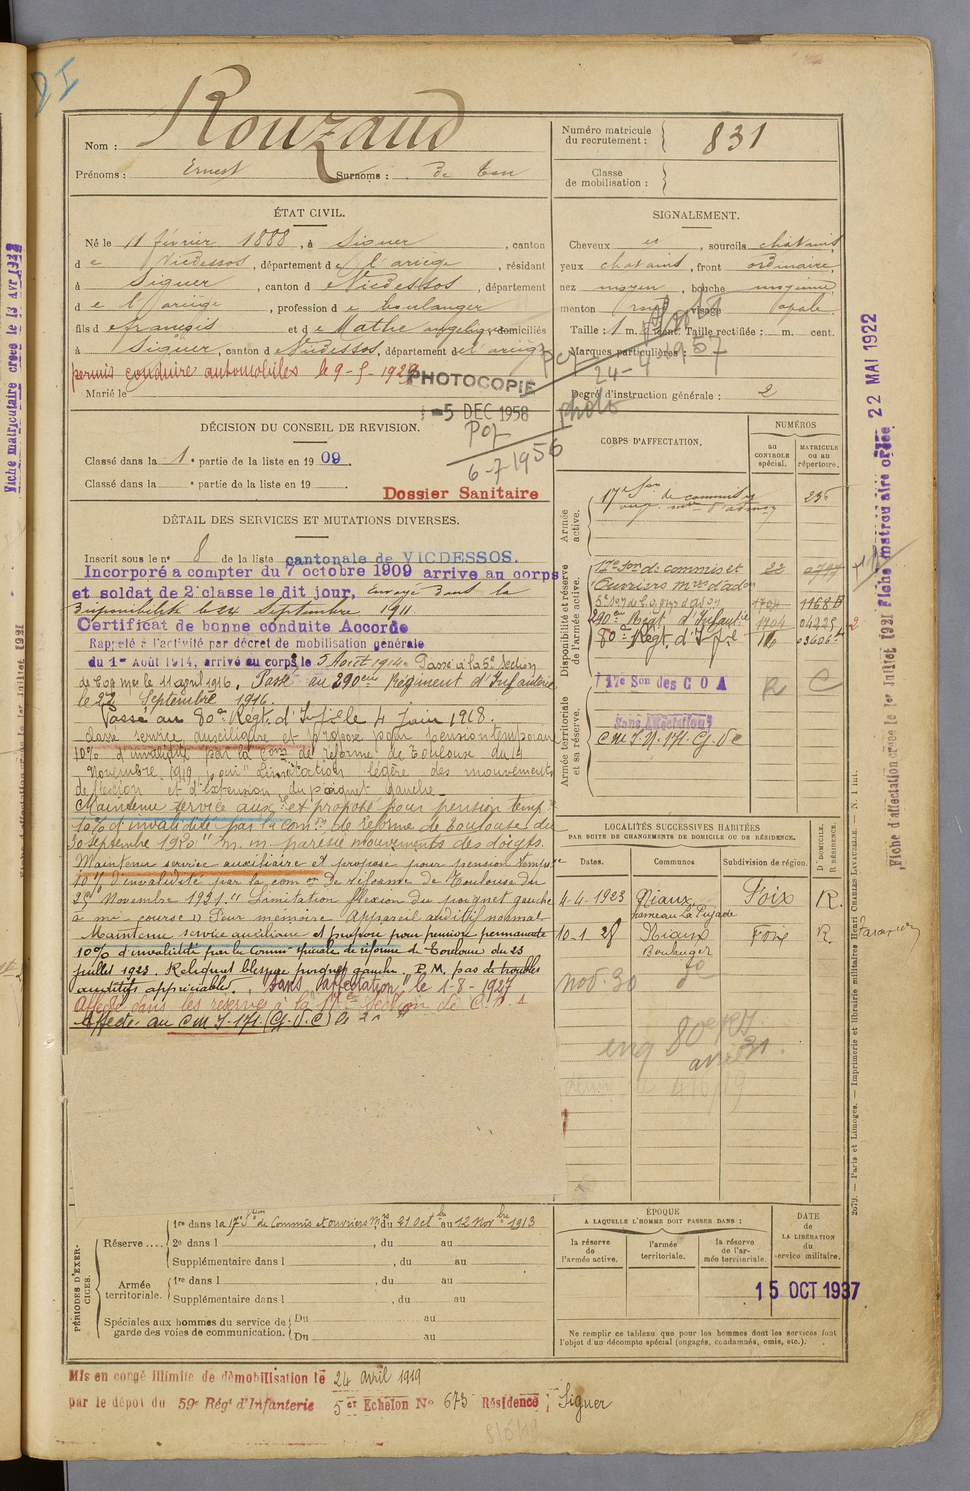 Rouzaud
Nom :
Prénoms : Ernest Surnoms :
Numéro matricule du recrutement : 831
Classe de mobilisation :
ÉTAT CIVIL.
Né le 11 février 1888, à Siguer, canton
de Vicdessos, département de l'ariège, résidant
à Siguer, canton de Vicdessos, département
de l'ariège, profession de boulanger
fils de françois et de Mathe angelique, domiciliés
à Siguer, canton de Vicdessos, département de l'ariège
permis conduire automobiles le 9-5-1929
Marié le
PHOTOCOPIE
5 DEC 1958
6-7-1956
SIGNALEMENT.
Cheveux , sourcils chatains
yeux chatains, front ordinaire
nez moyen, bouche moyenne
menton rond, visage ovale
Taille : 1 m. cent. Taille rectifiée : m. cent.
Marques particulières :
24-4 1957
photo
Degré d'instruction générale : 2
DÉCISION DU CONSEIL DE REVISION.
Classé dans la 1e partie de la liste en 1909.
Classé dans la e partie de la liste en 19 .
Dossier Sanitaire
DÉTAIL DES SERVICES ET MUTATIONS DIVERSES.
Inscrit sous le n° 8 de la liste cantonale de VICDESSOS.
Incorporé a compter du 7 octobre 1909 arrive au corps
et soldat de 2e classe le dit jour, Envoyé dans la
disponibilité le 24 Septembre 1911
Certificat de bonne conduite Accordé
Rappelé à l'activité par décret de mobilisation générale
du 1er Août 1914, arrivé au corps le 5 Août 1914. Passé à la 5e Section
de Coa mre le 11 april 1916. Passé au 290ème Régiment d'Infanterie
le 22 Septembre 1916.
Passé au 80e Regt. d'Inf. le 4 Juin 1918.
classé service auxiliaire et proposé pour pension temporaire
10% d'invalidité par la Com de réforme de Toulouse du 14
Novembre 1919 pour "Limitation légère des mouvements
de flexion et d'extension du poignet gauche
Maintenu service aux. et proposé pour pension temp.re
10% d'invalidité par la Com.on de réforme de Toulouse du
30 septembre 1920 m. m. parésie mouvements des doigts.
Maintenu service auxiliaire et proposé pour pension temp.re
10% d'invalidité par la com.on de réforme de Toulouse du
25 Novembre 1921 "Limitation flexion du poignet gauche
à mi-course" Pour mémoire Appareil auditif normal
Maintenu service auxiliaire et proposé pour pension permanente
10% d'invalidité par la Comon spéciale de réforme de Toulouse du 23
juillet 1923. Reliquat blessure poignet gauche. P.M. pas de troubles
auditifs appréciables. "Sans affectation" le 1-8-1927
Affecté dans les réserves à la 17e Section de C.O.A
Affecté au CMI-171 (G.V.C)
CORPS D'AFFECTATION.
NUMÉROS
au contrôle spécial.
matricule ou au répertoire.
Armée active.
17e Son de commis et
ouv. mre d'admon 236
Disponibilité et réserve de l'armée active.
17e Son de commis et 22
Ouvriers mres d'adon
5e Son de C. Ouvr. d'Adon
290e Regt d'Infantie 1704 04225
80e Regt. d'Infie
Armée territoriale et sa réserve.
17e Son des C O A R C
Sans Affectation
CMI N. 171. G.V.C
LOCALITÉS SUCCESSIVES HABITÉES
PAR SUITE DE CHANGEMENTS DE DOMICILE OU DE RÉSIDENCE.
Dates. Communes Subdivision de région. D' DOMICILE. R RÉSIDENCE.
4-4-1923 Rieux Foix R.
hameau
10-1-28 Foix R
Boulanger
nov. 30
PÉRIODES D'EXERCICES.
Réserve....
1re dans la 17e Son de Commis et ouvriers du 21 Octbre au 12 Novbre 1913
2e dans l , du au
Supplémentaire dans l , du au
Armée territoriale.
1re dans l , du au
Supplémentaire dans l , du au
Spéciales aux hommes du service de garde des voies de communication.
Du au
Du au
ÉPOQUE
A LAQUELLE L'HOMME DOIT PASSER DANS :
la réserve de l'armée active.
l'armée territoriale.
la réserve de l'armée territoriale.
DATE DE LA LIBÉRATION du service militaire.
15 OCT 1937
Ne remplir ce tableau que pour les hommes dont les services font
l'objet d'un décompte spécial (engagés, condamnés, omis, etc.).
Mis en congé illimité de démobilisation le 24 avril 1919
par le dépôt du 59e Régt d'Infanterie 5er Echelon No 673 Résidence : Siguer
Fiche matriculaire créée le 13 AVR 1922
Fiche d'affectation créée le 1er Juillet 1921
Fiche matriculaire créée 22 MAI 1922
2679. — Paris et Limoges. — Imprimerie et librairie militaires Henri CHARLES-LAVAUZELLE.